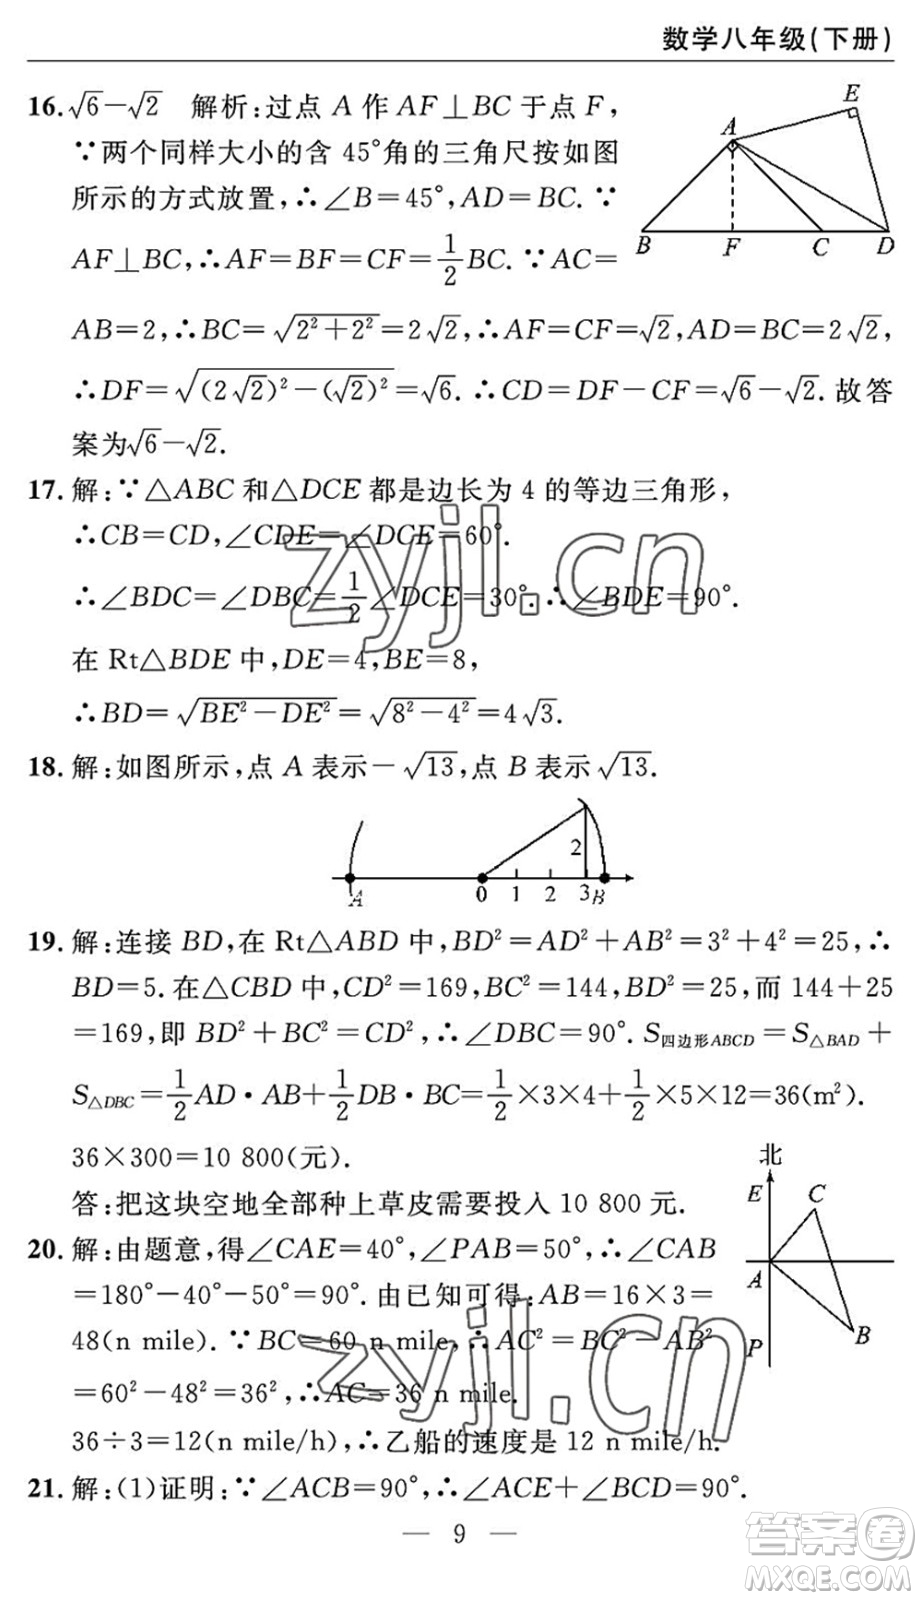 数学八年级(下册)
16. √6－√2　解析:过点 A 作 AF⊥BC 于点 F,
∵两个同样大小的含 45°角的三角尺按如图
所示的方式放置,∴∠B=45°,AD=BC. ∵
AF⊥BC,∴AF=BF=CF=1/2BC. ∵AC=
AB=2,∴BC=√(2²+2²)=2√2,∴AF=CF=√2,AD=BC=2√2,
∴DF=√((2√2)²－(√2)²)=√6. ∴CD=DF－CF=√6－√2. 故答
案为√6－√2.
E
A
B F C D
17. 解:∵△ABC 和△DCE 都是边长为 4 的等边三角形,
∴CB=CD,∠CDE=∠DCE=60°.
∴∠BDC=∠DBC=1/2∠DCE=30°.∴∠BDE=90°.
在 Rt△BDE 中,DE=4,BE=8,
∴BD=√(BE²－DE²)=√(8²－4²)=4√3.
zyjl.cn
18. 解:如图所示,点 A 表示－√13,点 B 表示√13.
2
A 0 1 2 3 B
19. 解:连接 BD,在 Rt△ABD 中,BD²=AD²+AB²=3²+4²=25,∴
BD=5. 在△CBD 中,CD²=169,BC²=144,BD²=25,而 144+25
=169,即 BD²+BC²=CD²,∴∠DBC=90°. S四边形ABCD=S△BAD+
S△DBC=1/2AD·AB+1/2DB·BC=1/2×3×4+1/2×5×12=36(m²).
36×300=10 800(元).
答:把这块空地全部种上草皮需要投入 10 800 元.
20. 解:由题意,得∠CAE=40°,∠PAB=50°,∴∠CAB
=180°－40°－50°=90°. 由已知可得:AB=16×3=
48(n mile). ∵BC=60 n mile,∴AC²=BC²－AB²
=60²－48²=36²,∴AC=36 n mile.
36÷3=12(n mile/h),∴乙船的速度是 12 n mile/h.
北
E C
A
B
P
zyjl.cn
21. 解:(1)证明:∵∠ACB=90°,∴∠ACE+∠BCD=90°.
— 9 —
答案圈
MXQE.COM